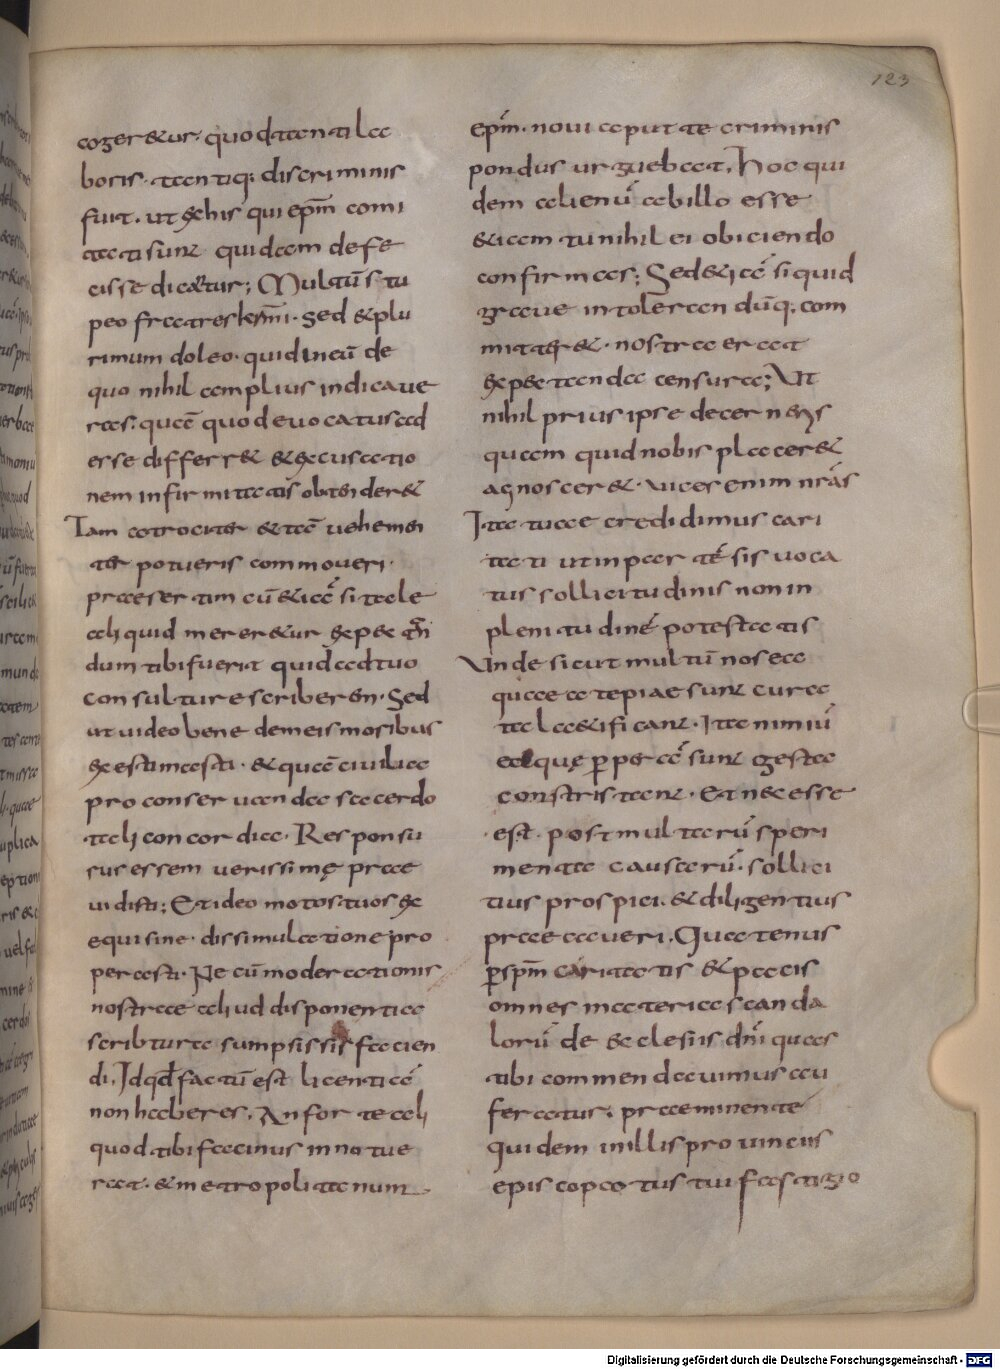 123
cogeretur. quod tanti la
boris. tantiq; discriminis
fuit. ut et his qui epm comi
tati sunt quidam defe
cisse dicatur; Multū stu
peo fratres kmi. sed et plu
rimum doleo. quid in eū de
quo nihil amplius indicave
ras. quā quod evocatus ad
esse differret et excusatio
nem infirmitatis obtenderet
Tam atrociter et tā vehemen
ter potueris commoveri.
praesertim cū etiā si tale
aliquid mereretur expectan
dum tibi fuerit quid ad tuo
consulture scriberem. Sed
ut video bene de meis moribus
existimasti. et quā civilia
pro conservanda sacerdo
tali concordia. Responsu
rus essem verissime prae
vidisti; Et ideo motos tuos ex
equi sine dissimulatione pro
perasti. Ne cū moderationis
nostrae aliud disponentia
scribturta sumpsissis facien
di. Id qd factū est licentiā
non haberes. An forte ali
quod tibi facinus innotue
rat. et metropolitanum
epm. novi caput te criminis
pondus urguebat. Hoc qui
dem alienū ab illo esse
etiam tu nihil ei obiciendo
confirmas; Sed etiā si quid
grave intolerandūq; com
mitteret. nostra erat
expectanda censura; Ut
nihil prius ipse decerneres
quam quid nobis placeret
agnosceret. vices enim nrās
Ita tuae credidimus cari
tati ut in partē sis voca
tus sollicitudinis non in
plenitudinē potestatis
Unde sicut multū nos ea
quae a te piae sunt cura
ta laetificant. Ita nimiū
ea quę perperā sunt gesta
constristant. Et necesse
est. post multarū speri
menta causarū. sollici
tius prospici. et diligentius
praecaveri. Quatenus
per spm caritatis et pacis
omnes materias scanda
lorū de ecclesiis dni quas
tibi commendavimus au
feratur. praeeminentē
quidem in illis provinciis
episcopatus tui fastigio
Digitalisierung gefördert durch die Deutsche Forschungsgemeinschaft - DFG